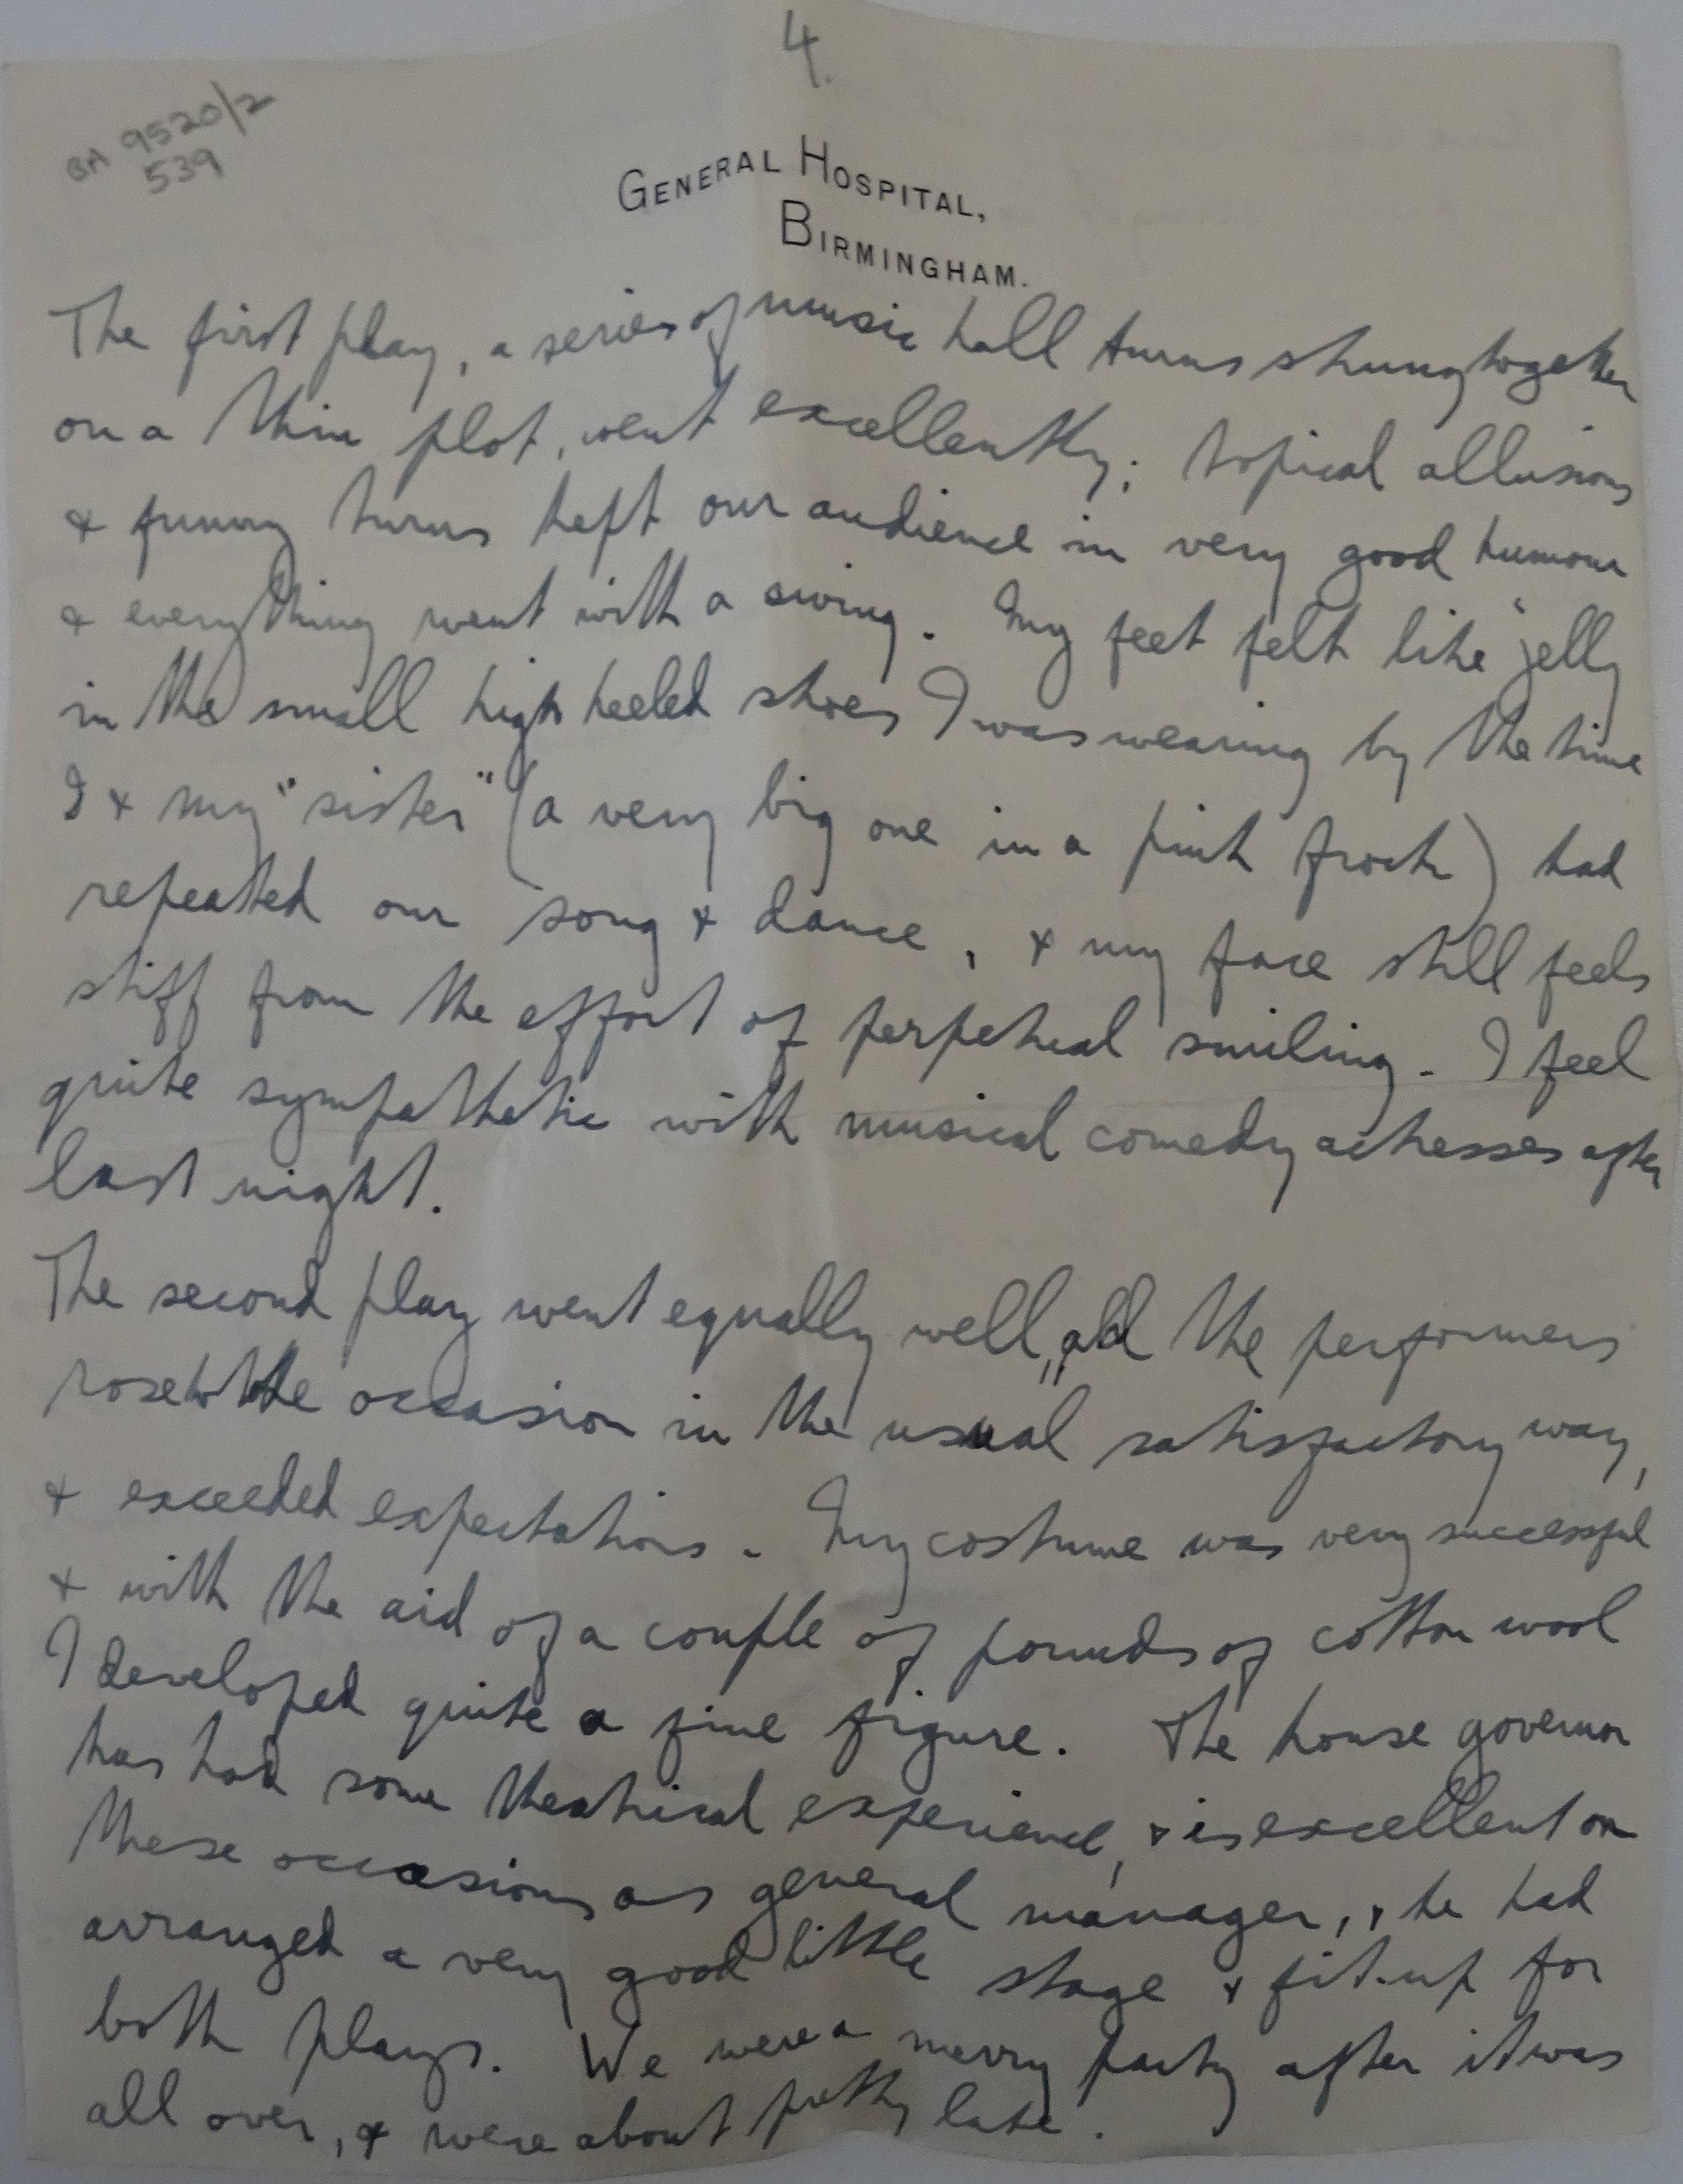 4.
BA 9520/2
539
GENERAL HOSPITAL,
BIRMINGHAM.
The first play, a series of music hall turns strung together
on a thin plot, went excellently; topical allusions
& funny turns kept our audience in very good humour
& everything went with a swing. My feet felt like jelly
in the small high heeled shoes I was wearing by the time
I & my "sister" (a very big one in a pink frock) had
repeated our song & dance, & my face still feels
stiff from the effort of perpetual smiling. I feel
quite sympathetic with musical comedy actresses after
last night.
The second play went equally well, all the performers
rose to the occasion in the usual satisfactory way,
& exceeded expectations. My costume was very successful
& with the aid of a couple of pounds of cotton wool
I developed quite a fine figure. The house governor
has had some theatrical experience, & is excellent on
these occasions as general manager, & he had
arranged a very good little stage & fit-up for
both plays. We were a merry party after it was
all over, & were about pretty late.